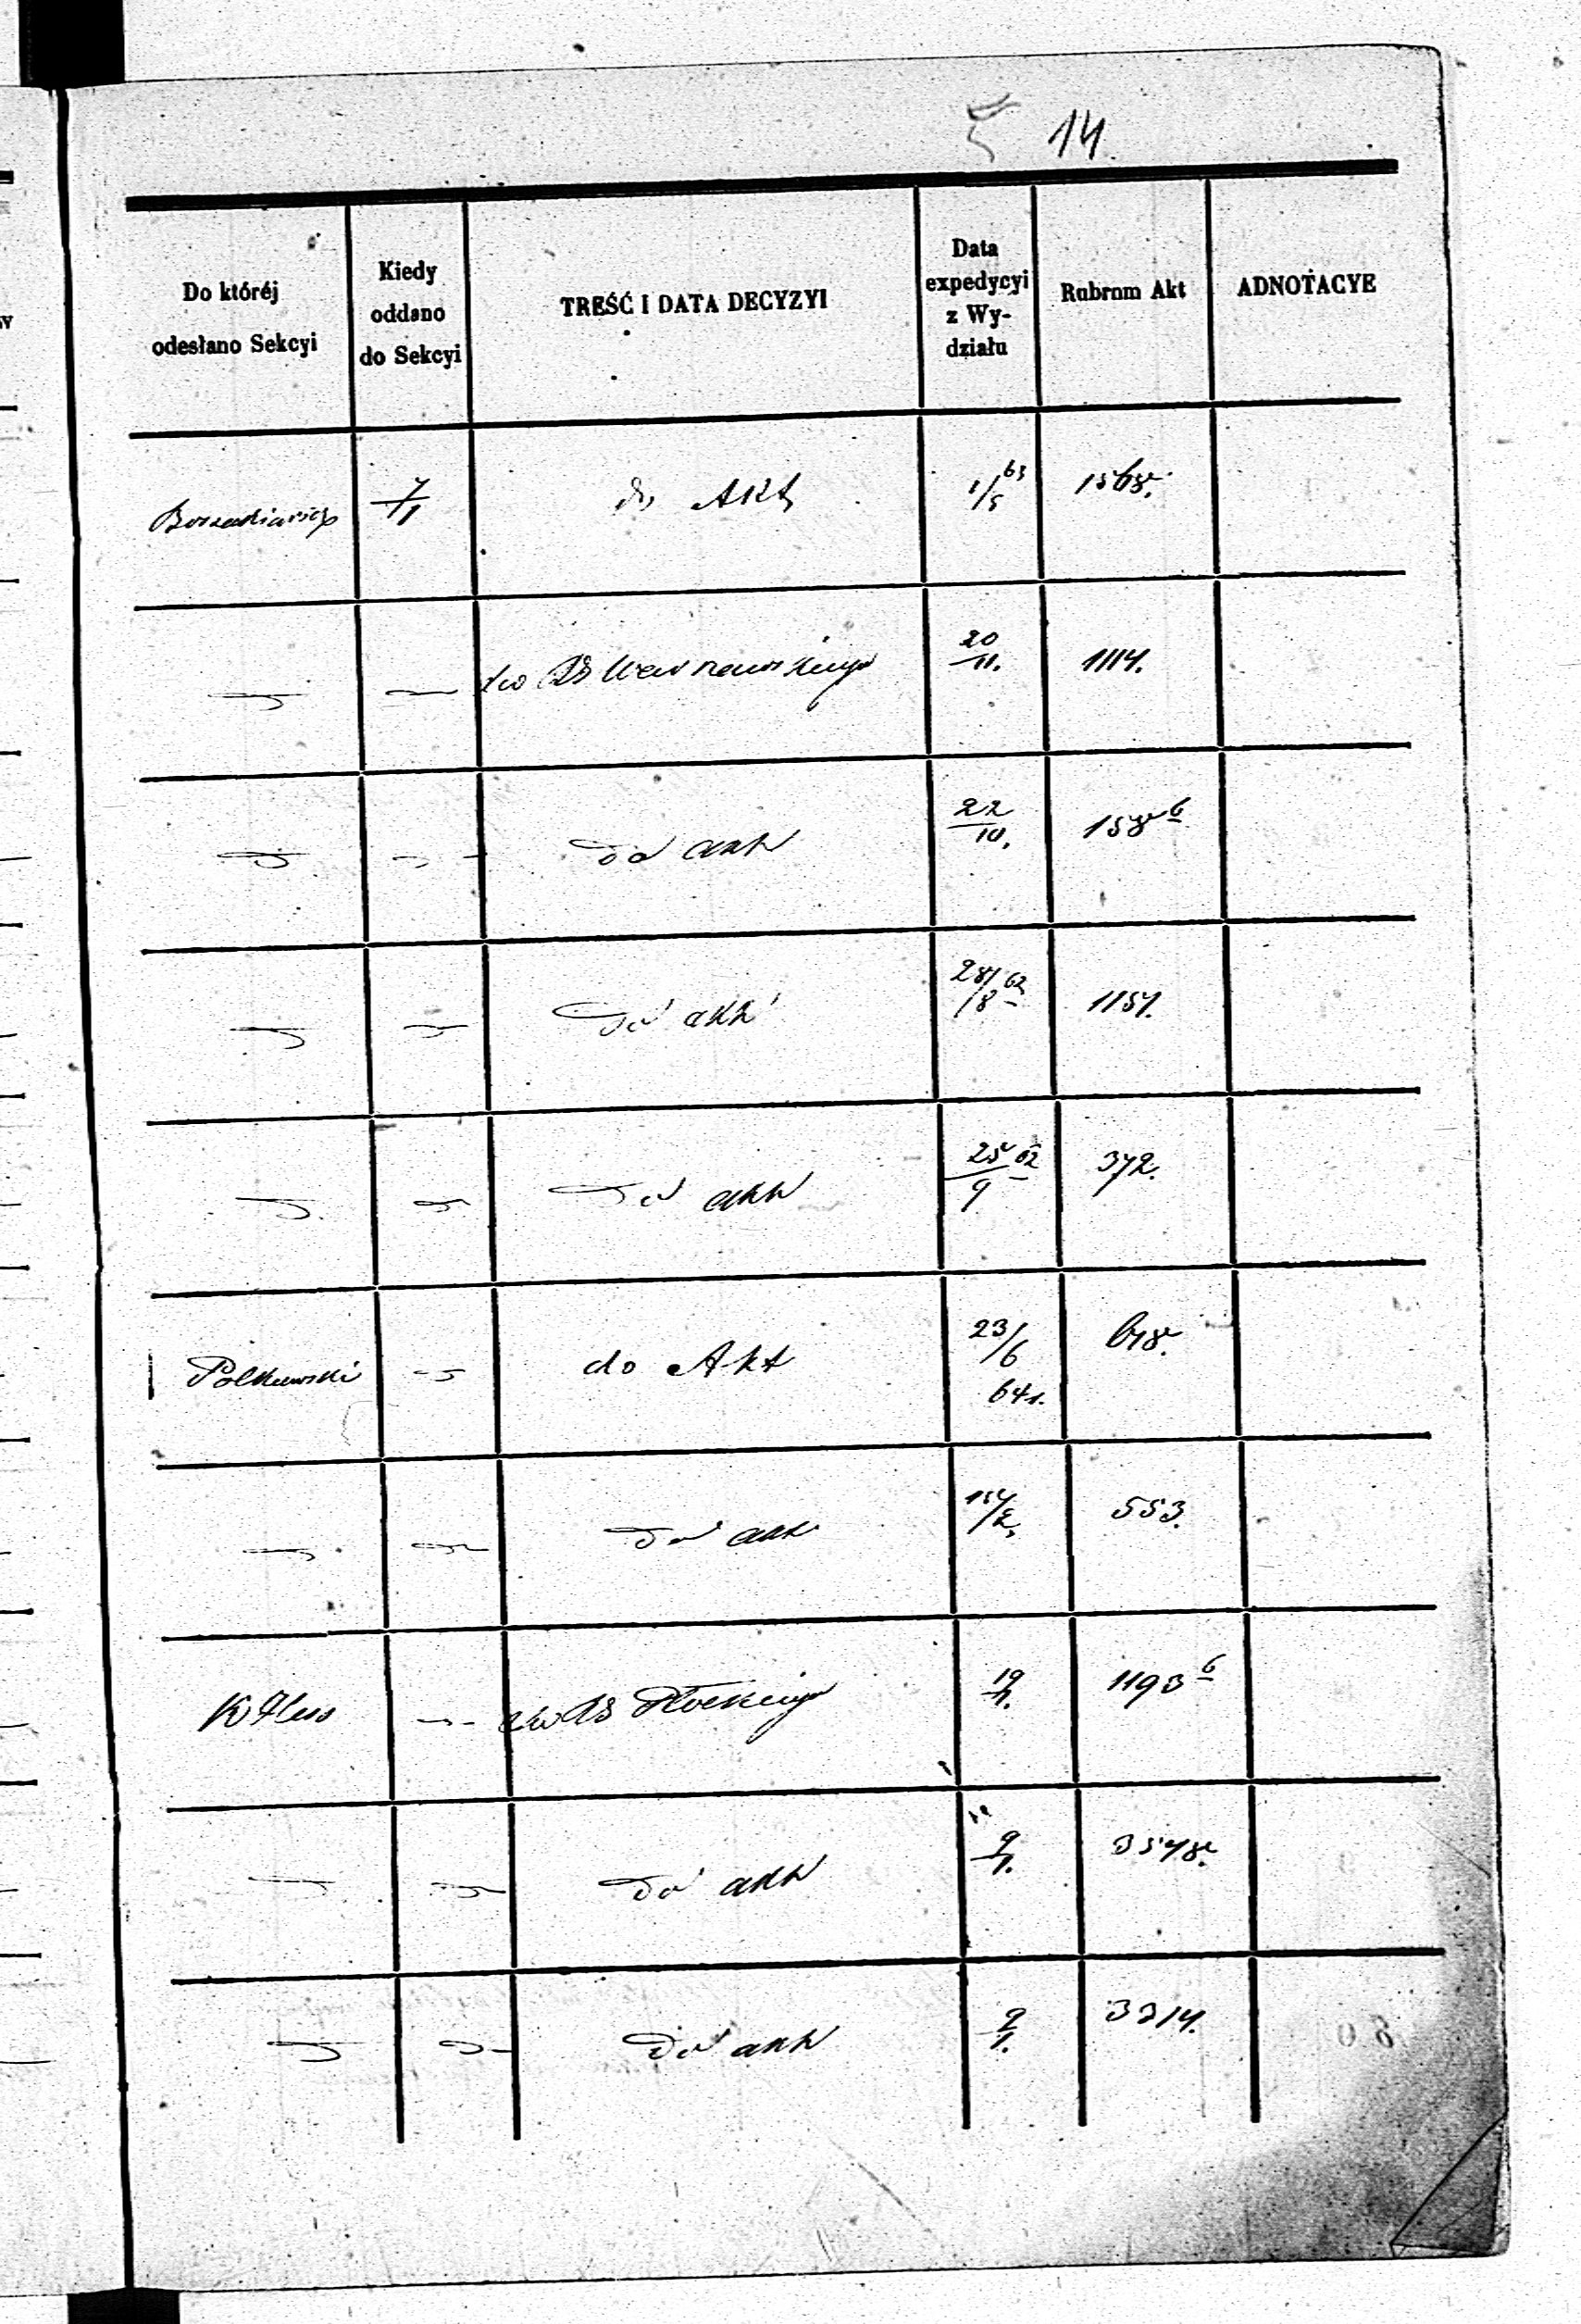 14.
Do któréj odesłano Sekcyi
Kiedy oddano do Sekcyi
TREŚĆ I DATA DECYZYI
Data expedycyi z Wy- działu
Rubrum Akt
ADNOTACYE
7/1 do Akt 1/5 63
do RG Warszawskiego 20/11. 1114.
do akt 22/10.
do akt 28/8 62 1157.
do akt 25/9 62 372.
Polkowski do Akt 23/6 64r. 678.
do akt 553.
do RG Płockiego 19/1. 1193 6
do akt 9/1. 3578.
do akt 9/1. 3314.